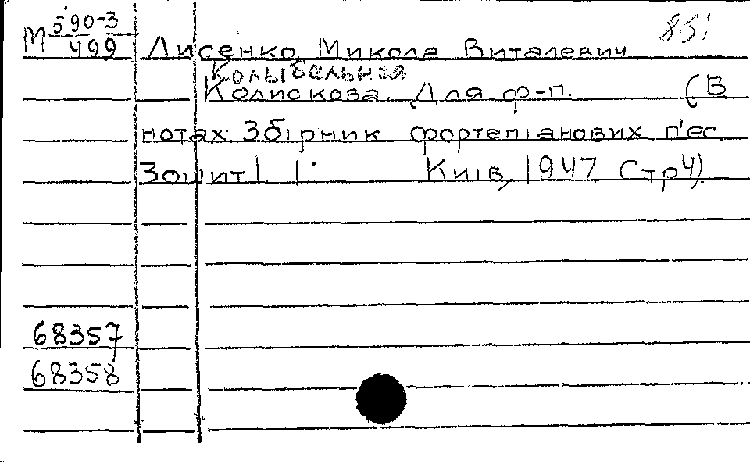 М 590-3/499 Лисенко Микола Виталевич 851
Колыбельная
Колискова. Для ф-п. (В
нотах: Збірник фортепіанових п'ес
Зошит 1. Київ, 1947 Стр 4).
68357
68358